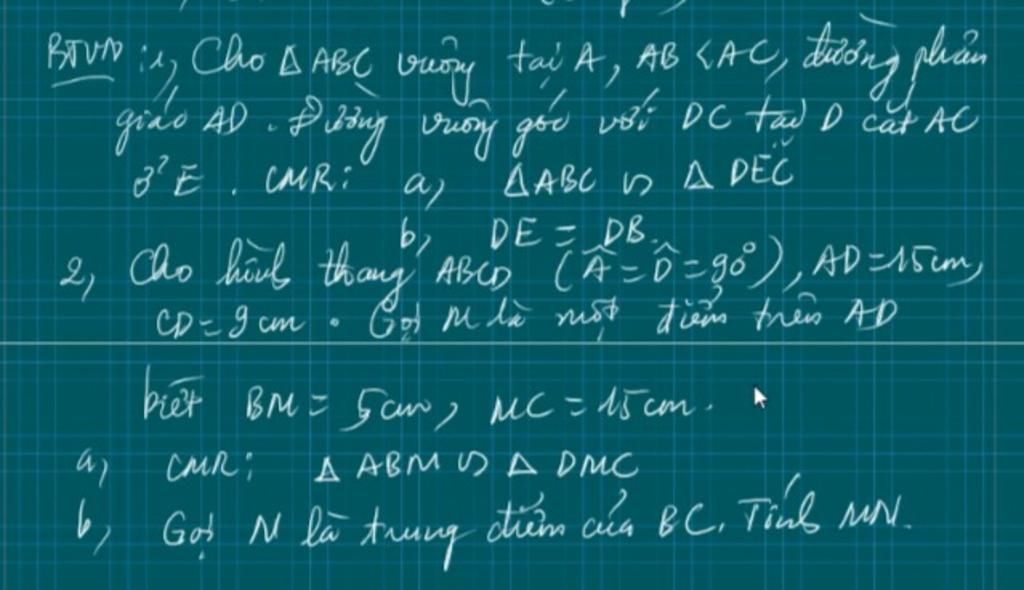 BTVN: 1, Cho Δ ABC vuông tại A, AB < AC, đường phân
giác AD. Đường vuông góc với DC tại D cắt AC
ở E. CMR: a, ΔABC ᔕ Δ DEC
b, DE = DB.
2, Cho hình thang ABCD (Â = D̂ = 90°), AD = 15cm,
CD = 9 cm. Gọi M là một điểm trên AD
biết BM = 5cm, MC = 15cm.
a, CMR: Δ ABM ᔕ Δ DMC
b, Gọi N là trung điểm của BC. Tính MN.